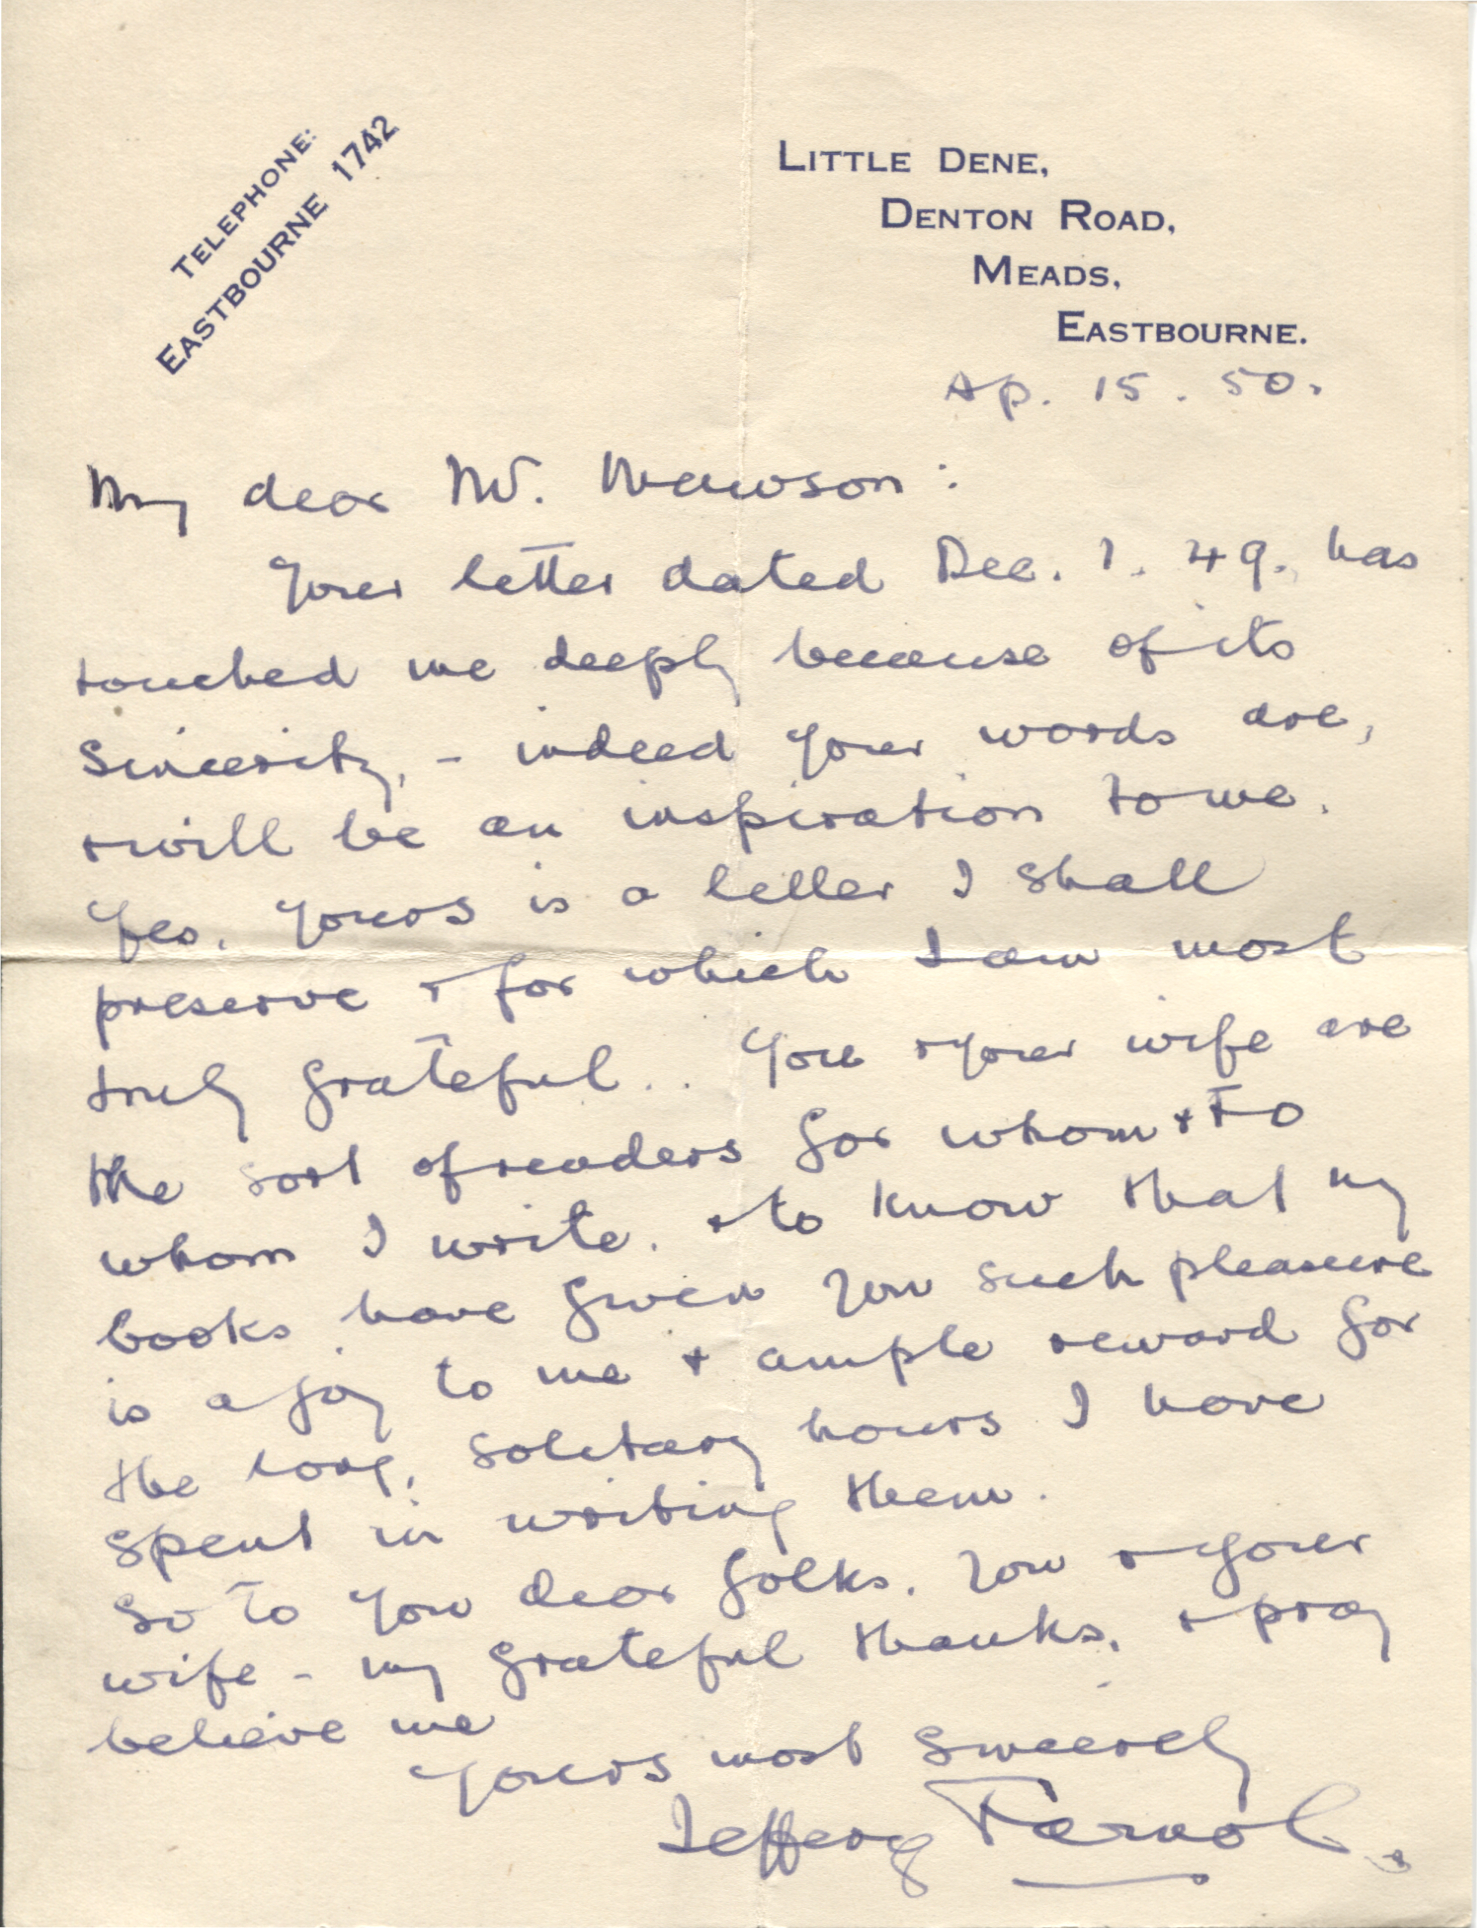 TELEPHONE:
EASTBOURNE 1742
LITTLE DENE,
DENTON ROAD,
MEADS,
EASTBOURNE.
Ap. 15. 50.
My dear Mr. Mawson:
Your letter dated Dec. 1. 49. has
touched me deeply because of its
sincerity, - indeed your words are,
& will be an inspiration to me.
Yes, yours is a letter I shall
preserve & for which I am most
truly grateful.. You & your wife are
the sort of readers for whom & to
whom I write. & to know that my
books have given you such pleasure
is a joy to me & ample reward for
the long, solitary hours I have
spent in writing them.
So to you dear folks, you & your
wife - my grateful thanks, & pray
believe me
Yours most sincerely
Jeffery Farnol.